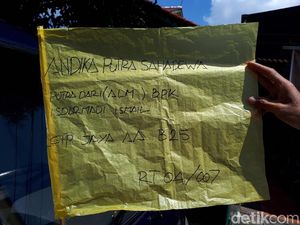 ANDIKA PUTRA SAHADEWA
PUTRA DARI (ALM) BPK
SUDARMADI ISMAIL
GYP JAYA AA B25
RT 04/007
detikcom